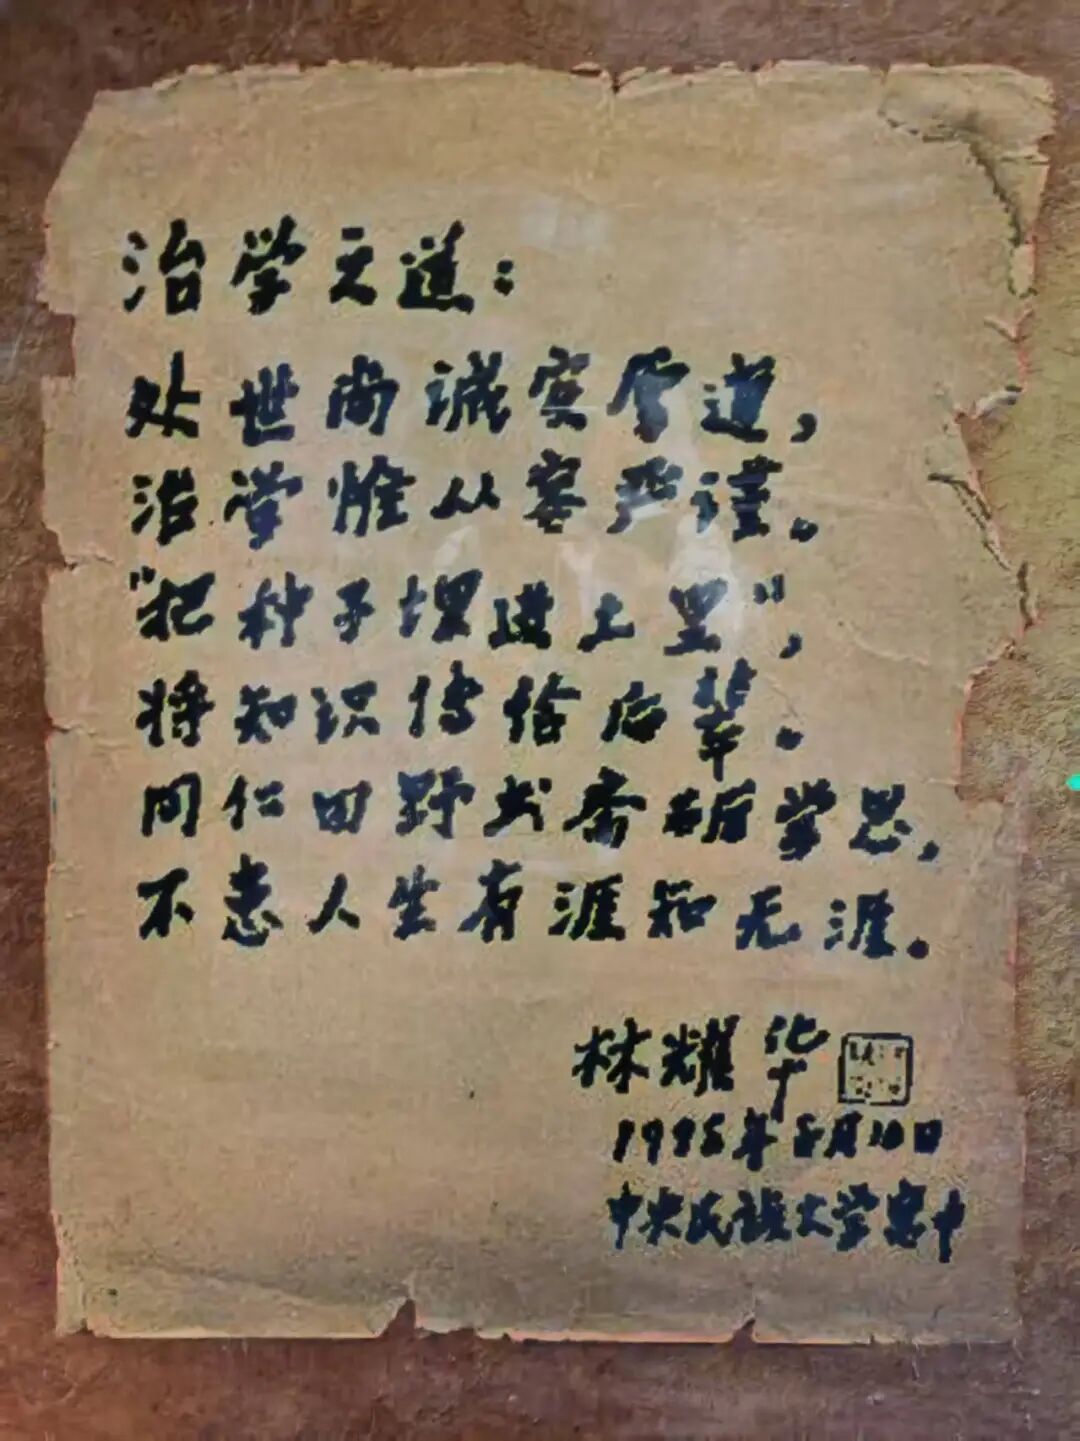 治学之道：
处世尚诚实厚道，
治学惟从容严谨。
"把种子埋进土里"，
将知识传给后辈。
同仁田野书斋研学思，
不患人生有涯知无涯。
林耀华
1995年5月10日
中央民族大学寓中